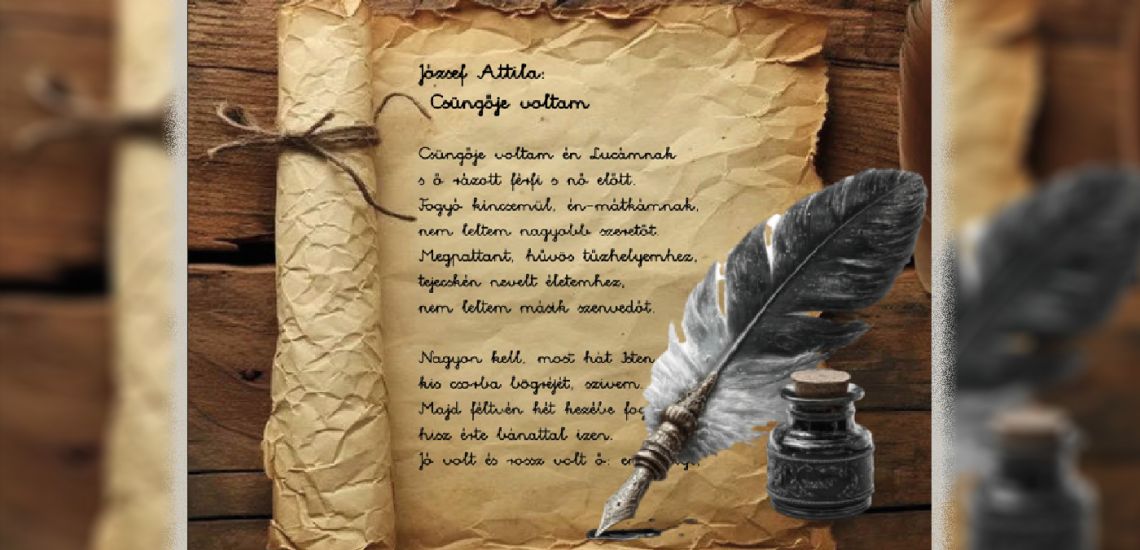 József Attila:
Csüngője voltam
Csüngője voltam én Lucámnak
s ő rázott férfi s nő előtt.
Fogyó kincsemül, én-mátkámnak,
nem leltem nagyobb szeretőt.
Megpattant, hűvös tűzhelyemhez,
tejecskén nevelt életemhez,
nem leltem másik szenvedőt.
Nagyon kell, most hát Isten
kis csorba bögréjét, szivem.
Majd féltvén két kezébe
hisz érte bánattal izen.
Jó volt és rossz volt ő: